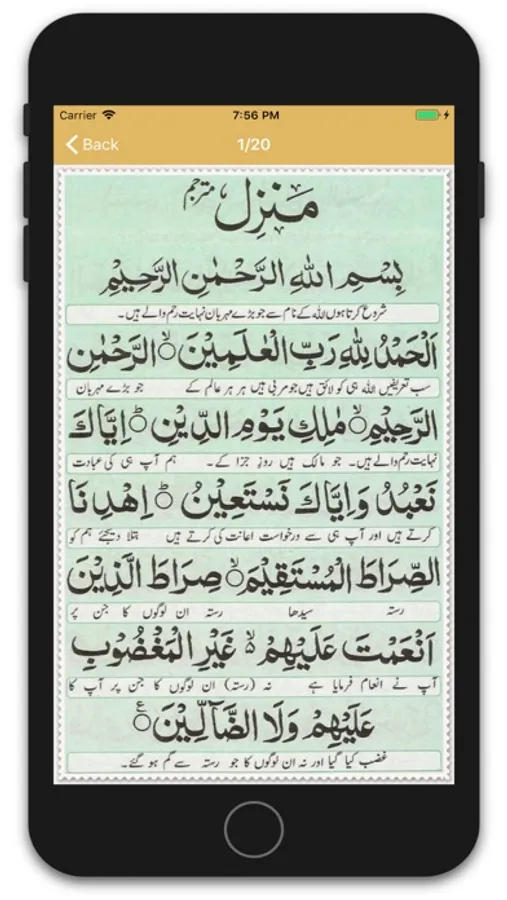 Carrier 7:56 PM
Back 1/20
مَنزِل مترجم
بِسْمِ اللهِ الرَّحْمٰنِ الرَّحِيْمِ
شروع کرتا ہوں اللہ کے نام سے جو بڑے مہربان نہایت رحم والے ہیں۔
اَلْحَمْدُ لِلّٰهِ رَبِّ الْعٰلَمِيْنَ ۙ الرَّحْمٰنِ
سب تعریفیں اللہ ہی کو لائق ہیں جو مربی ہیں ہر ہر عالم کے جو بڑے مہربان
الرَّحِيْمِ ۙ مٰلِكِ يَوْمِ الدِّيْنِ ؕ اِيَّاكَ
نہایت رحم والے ہیں۔ جو مالک ہیں روز جزا کے۔ ہم آپ ہی کی عبادت
نَعْبُدُ وَاِيَّاكَ نَسْتَعِيْنُ ؕ اِهْدِنَا
کرتے ہیں اور آپ ہی سے درخواست اعانت کی کرتے ہیں بتلا دیجئے ہم کو
الصِّرَاطَ الْمُسْتَقِيْمَ ۙ صِرَاطَ الَّذِيْنَ
رستہ سیدھا رستہ ان لوگوں کا جن پر
اَنْعَمْتَ عَلَيْهِمْ ۙ غَيْرِ الْمَغْضُوْبِ
آپ نے انعام فرمایا ہے نہ (رستہ) ان لوگوں کا جن پر آپ کا
عَلَيْهِمْ وَلَا الضَّآلِّيْنَ ۧ
غضب کیا گیا اور نہ ان لوگوں کا جو رستہ سے گم ہو گئے۔